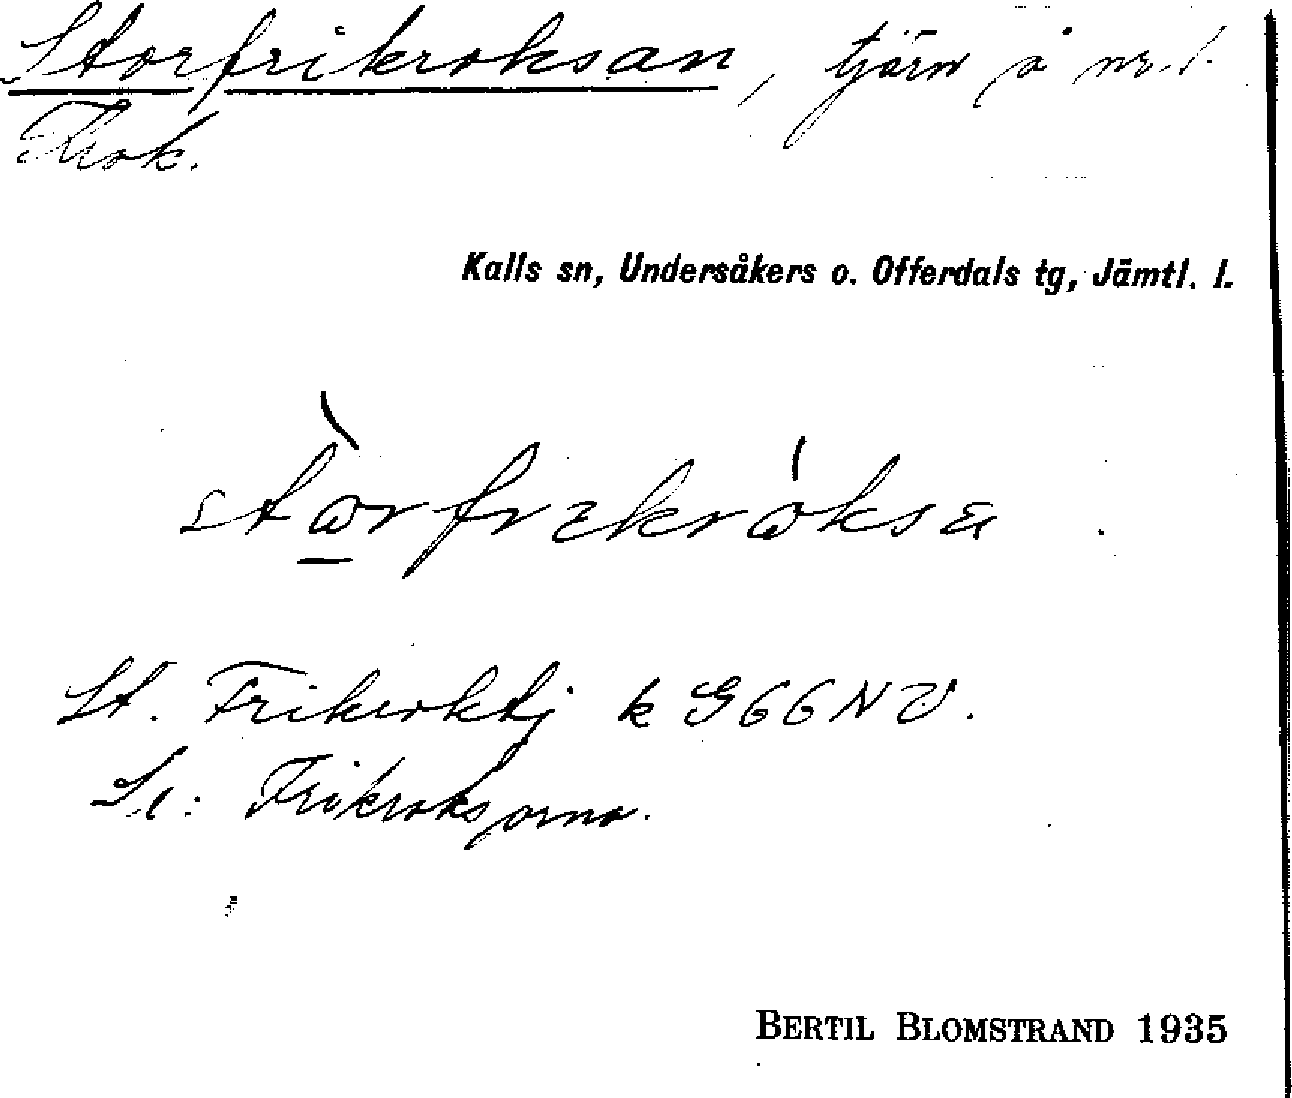 Storfrikroksan, tjärn å nr. 1
Krok.
Kalls sn, Undersåkers o. Offerdals tg, Jämtl. l.
stɷ̀rfrɩkrɷ́ksa
St. Frikroktj k G66NV.
Se: Frikroksjorna.
BERTIL BLOMSTRAND 1935